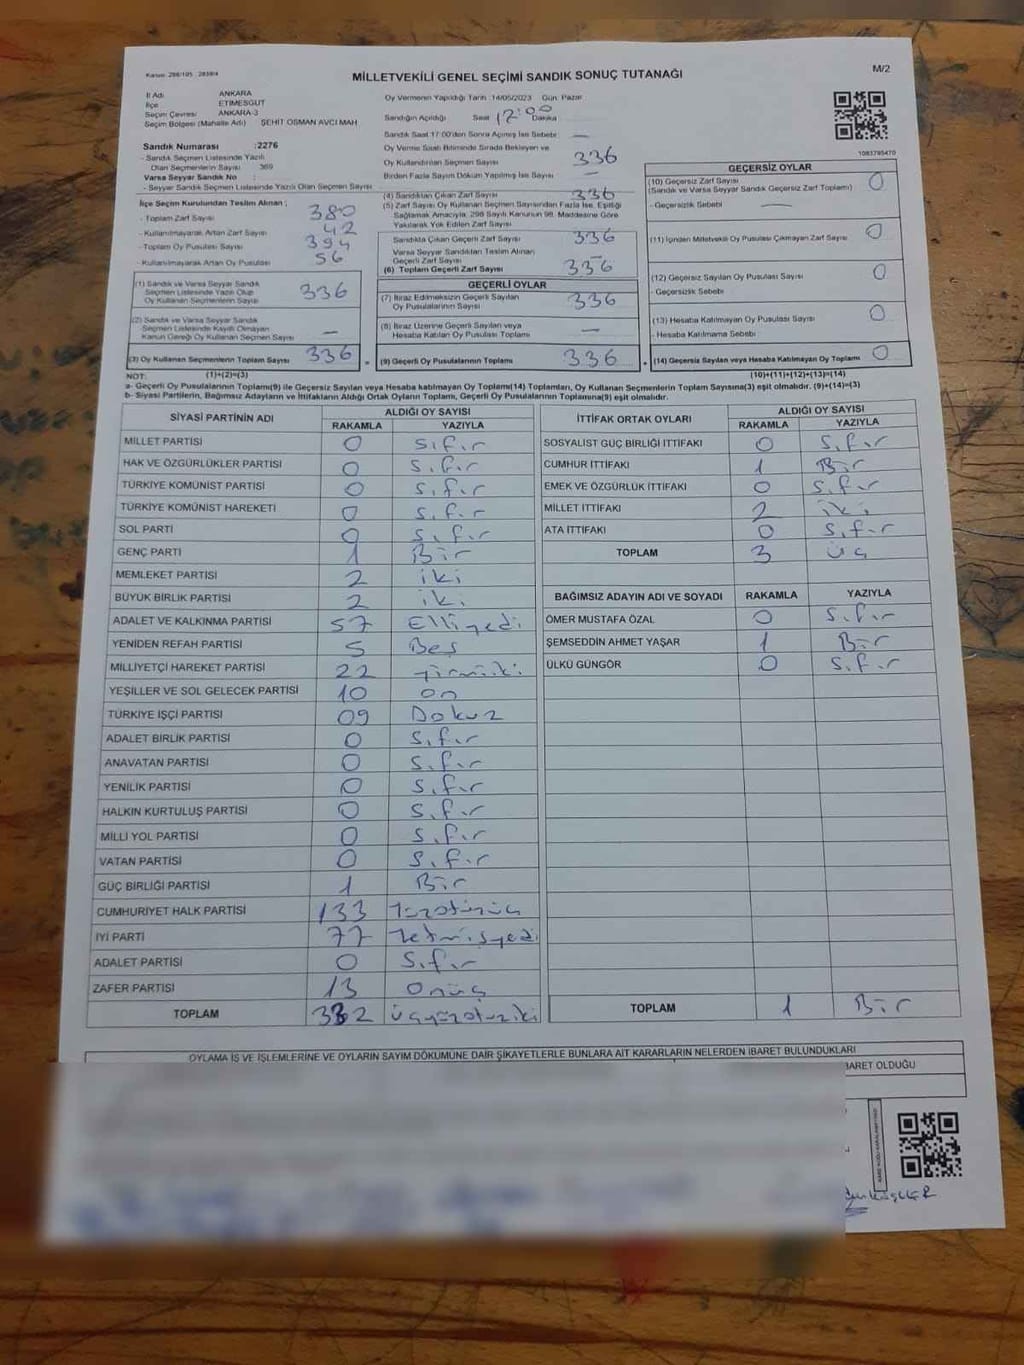 Kanun: 298/105 , 2839/4
MİLLETVEKİLİ GENEL SEÇİMİ SANDIK SONUÇ TUTANAĞI
M/2
İl Adı ANKARA
İlçe ETİMESGUT
Seçim Çevresi ANKARA-3
Seçim Bölgesi (Mahalle Adı) ŞEHİT OSMAN AVCI MAH.
Sandık Numarası :2276
- Sandık Seçmen Listesinde Yazılı
Olan Seçmenlerin Sayısı 369
Varsa Seyyar Sandık No :
- Seyyar Sandık Seçmen Listesinde Yazılı Olan Seçmen Sayısı
İlçe Seçim Kurulundan Teslim Alınan ;
- Toplam Zarf Sayısı 380
- Kullanılmayarak Artan Zarf Sayısı 42
- Toplam Oy Pusulası Sayısı 394
- Kullanılmayarak Artan Oy Pusulası 56
(1) Sandık ve Varsa Seyyar Sandık
Seçmen Listesinde Yazılı Olup
Oy Kullanan Seçmenlerin Sayısı 336
(2) Sandık ve Varsa Seyyar Sandık
Seçmen Listesinde Kayıtlı Olmayan
Kanun Gereği Oy Kullanan Seçmen Sayısı —
(3) Oy Kullanan Seçmenlerin Toplam Sayısı 336
(1)+(2)=(3)
Oy Vermenin Yapıldığı Tarih :14/05/2023 Gün: Pazar
Sandığın Açıldığı Saat 17:00 Dakika
Sandık Saat 17:00'den Sonra Açılmış İse Sebebi: —
Oy Verme Saati Bitiminde Sırada Bekleyen ve
Oy Kullandırılan Seçmen Sayısı 336
Birden Fazla Sayım Döküm Yapılmış İse Sayısı —
(4) Sandıktan Çıkan Zarf Sayısı 336
(5) Zarf Sayısı Oy Kullanan Seçmen Sayısından Fazla İse, Eşitliği
Sağlamak Amacıyla, 298 Sayılı Kanunun 98. Maddesine Göre
Yakılarak Yok Edilen Zarf Sayısı
Sandıkta Çıkan Geçerli Zarf Sayısı 336
Varsa Seyyar Sandıktan Teslim Alınan
Geçerli Zarf Sayısı —
(6) Toplam Geçerli Zarf Sayısı 336
GEÇERLİ OYLAR
(7) İtiraz Edilmeksizin Geçerli Sayılan
Oy Pusulalarının Sayısı 336
(8) İtiraz Üzerine Geçerli Sayılan veya
Hesaba Katılan Oy Pusulası Toplamı —
(9) Geçerli Oy Pusulalarının Toplamı 336
1083795470
GEÇERSİZ OYLAR
(10) Geçersiz Zarf Sayısı 0
(Sandık ve Varsa Seyyar Sandık Geçersiz Zarf Toplamı)
- Geçersizlik Sebebi —
(11) İçinden Milletvekili Oy Pusulası Çıkmayan Zarf Sayısı 0
(12) Geçersiz Sayılan Oy Pusulası Sayısı 0
- Geçersizlik Sebebi
(13) Hesaba Katılmayan Oy Pusulası Sayısı 0
- Hesaba Katılmama Sebebi
(14) Geçersiz Sayılan veya Hesaba Katılmayan Oy Toplamı 0
(10)+(11)+(12)+(13)=(14)
NOT:
a- Geçerli Oy Pusulalarının Toplamı(9) ile Geçersiz Sayılan veya Hesaba katılmayan Oy Toplamı(14) Toplamları, Oy Kullanan Seçmenlerin Toplam Sayısına(3) eşit olmalıdır. (9)+(14)=(3)
b- Siyasi Partilerin, Bağımsız Adayların ve İttifakların Aldığı Ortak Oyların Toplamı, Geçerli Oy Pusulalarının Toplamına(9) eşit olmalıdır.
SİYASİ PARTİNİN ADI ALDIĞI OY SAYISI
RAKAMLA YAZIYLA
MİLLET PARTİSİ 0 Sıfır
HAK VE ÖZGÜRLÜKLER PARTİSİ 0 Sıfır
TÜRKİYE KOMÜNİST PARTİSİ 0 Sıfır
TÜRKİYE KOMÜNİST HAREKETİ 0 Sıfır
SOL PARTİ 0 Sıfır
GENÇ PARTİ 1 Bir
MEMLEKET PARTİSİ 2 iki
BÜYÜK BİRLİK PARTİSİ 2 iki
ADALET VE KALKINMA PARTİSİ 57 Elliyedi
YENİDEN REFAH PARTİSİ 5 Beş
MİLLİYETÇİ HAREKET PARTİSİ 22 yirmiiki
YEŞİLLER VE SOL GELECEK PARTİSİ 10 on
TÜRKİYE İŞÇİ PARTİSİ 09 Dokuz
ADALET BİRLİK PARTİSİ 0 Sıfır
ANAVATAN PARTİSİ 0 Sıfır
YENİLİK PARTİSİ 0 Sıfır
HALKIN KURTULUŞ PARTİSİ 0 Sıfır
MİLLİ YOL PARTİSİ 0 Sıfır
VATAN PARTİSİ 0 Sıfır
GÜÇ BİRLİĞİ PARTİSİ 1 Bir
CUMHURİYET HALK PARTİSİ 133 Yüzotuzüç
İYİ PARTİ 77 Yetmişyedi
ADALET PARTİSİ 0 Sıfır
ZAFER PARTİSİ 13 Onüç
TOPLAM 332 Üçyüzotuziki
İTTİFAK ORTAK OYLARI ALDIĞI OY SAYISI
RAKAMLA YAZIYLA
SOSYALİST GÜÇ BİRLİĞİ İTTİFAKI 0 Sıfır
CUMHUR İTTİFAKI 1 Bir
EMEK VE ÖZGÜRLÜK İTTİFAKI 0 Sıfır
MİLLET İTTİFAKI 2 iki
ATA İTTİFAKI 0 Sıfır
TOPLAM 3 üç
BAĞIMSIZ ADAYIN ADI VE SOYADI RAKAMLA YAZIYLA
ÖMER MUSTAFA ÖZAL 0 Sıfır
ŞEMSEDDİN AHMET YAŞAR 1 Bir
ÜLKÜ GÜNGÖR 0 Sıfır
TOPLAM 1 Bir
OYLAMA İŞ VE İŞLEMLERİNE VE OYLARIN SAYIM DÖKÜMÜNE DAİR ŞİKAYETLERLE BUNLARA AİT KARARLARIN NELERDEN İBARET BULUNDUKLARI
BARET OLDUĞU